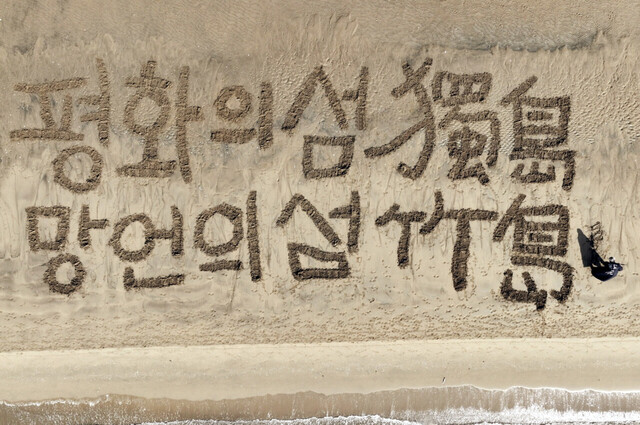 평화의섬 獨島
망언의섬 竹島